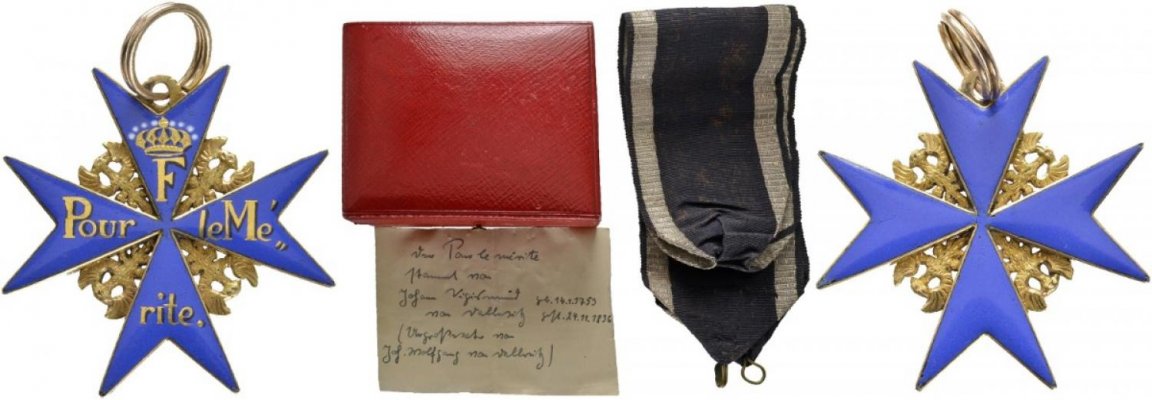 F
Pour le Mé„
rite.
Das Pour le mérite
stammt von
Johann Sigismund geb. 14.1.1753
von Dallwitz gest. 29.11.1836
(Urgroßvater von
Joh. Wolfgang von Dallwitz)